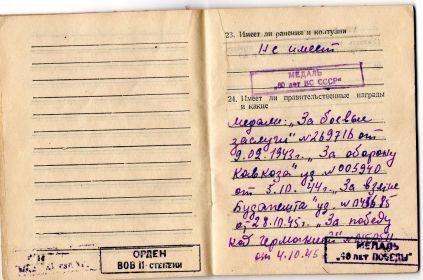 ОРДЕН
ВОВ II СТЕПЕНИ
23. Имеет ли ранения и контузии
Не имеет
МЕДАЛЬ
„60 лет ВС СССР“
24. Имеет ли правительственные награды
и какие
медали: „За боевые
заслуги“ №269716 от
9.02.1943г. „За оборону
Кавказа“ уд. №005940
от 5.10.44г. „За взятие
Будапешта“ уд.
от 28.10.45г. „За победу
над Германией“
от 4.10.45
МЕДАЛЬ
„40 лет ПОБЕДЫ“